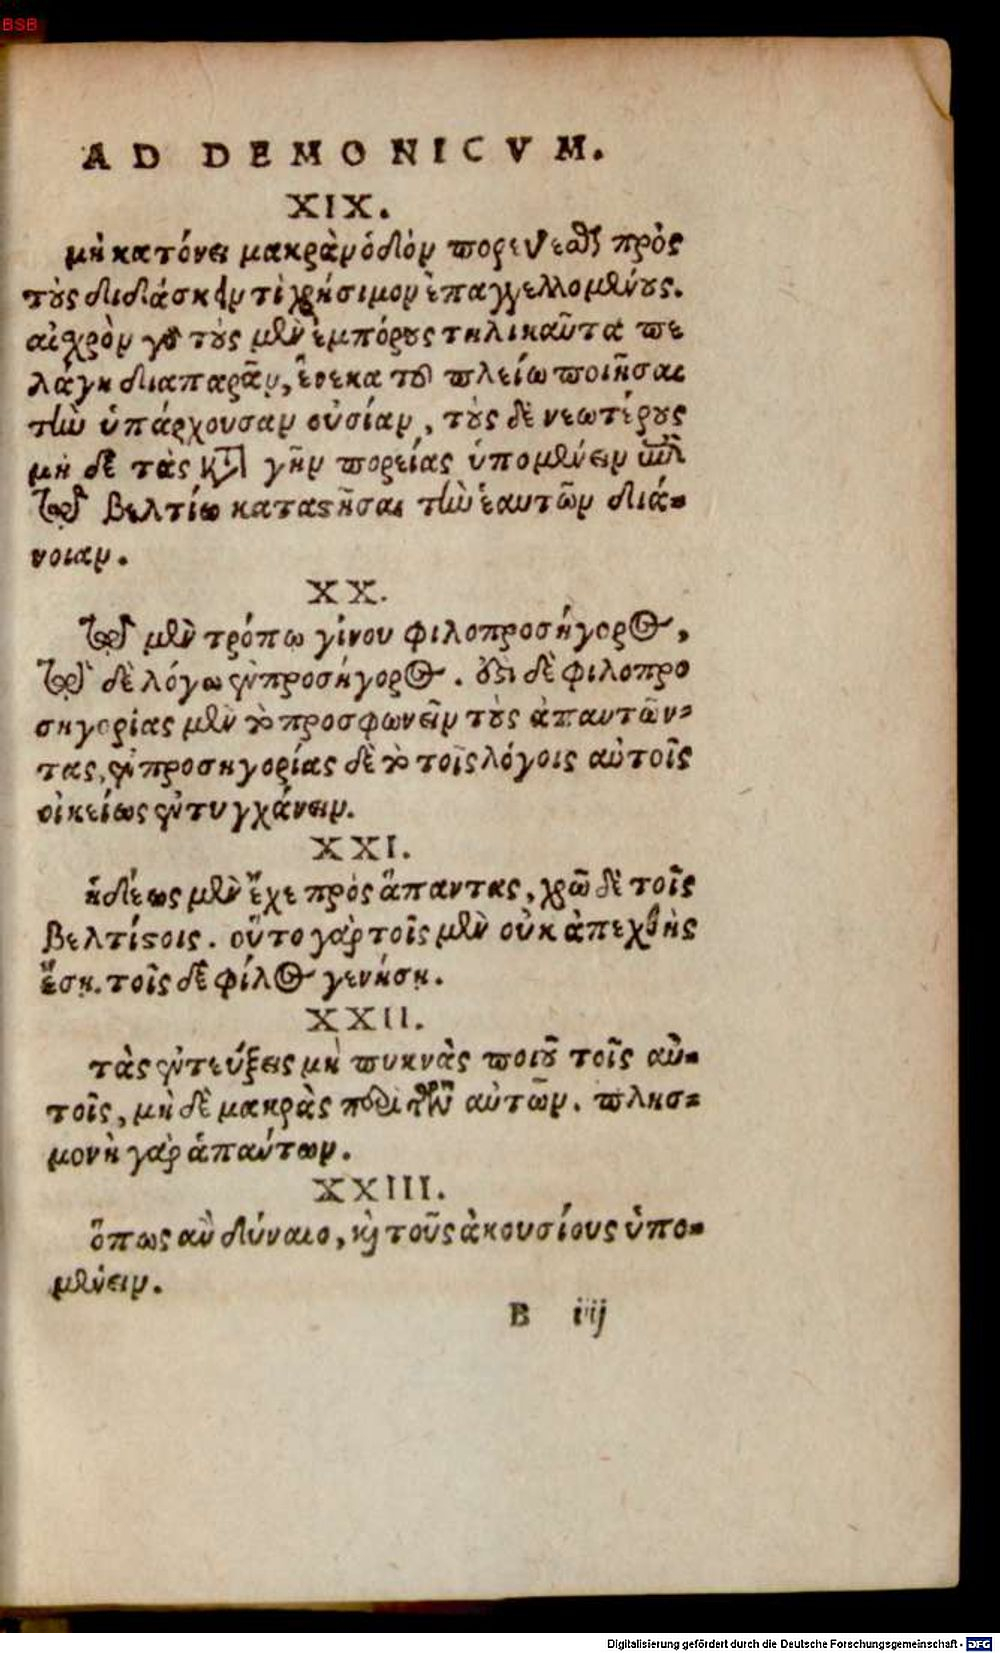 BSB
AD DEMONICVM.
XIX.
μὴ κατόνει μακρὰν ὁδὸν πορεύεσθαι πρὸς
τοὺς διδάσκειν τὶ χρήσιμον ἐπαγγελλομένους.
αἰσχρὸν γὸ τοὺς μὲν ἐμπόρους τηλικαῦτα πε
λάγη διαπαρᾶν, ἕνεκα τοῦ πλείω ποιῆσαι
τὴν ὑπάρχουσαν οὐσίαν, τοὺς δὲ νεωτέρους
μὴ δὲ τὰς κατὰ γῆν πορείας ὑπομένειν ἐπὶ
τῷ βελτίω καταστῆσαι τὴν ἑαυτῶν διά-
νοιαν.
XX.
τῷ μὲν τρόπω γίνου φιλοπροσήγορος,
τῷ δὲ λόγω εὐπροσήγορος. ἔστι δὲ φιλοπρο
σηγορίας μὲν τὸ προσφωνεῖν τοὺς ἀπαντῶν-
τας, εὐπροσηγορίας δὲ τὸ τοῖς λόγοις αὐτοῖς
οἰκείως ἐντυγχάνειν.
XXI.
ἡδέως μὲν ἔχε πρὸς ἅπαντας, χρῶ δὲ τοῖς
βελτίστοις. οὕτο γὰρ τοῖς μὲν οὐκ ἀπεχθὴς
ἔσῃ. τοῖς δὲ φίλος γενήσῃ.
XXII.
τὰς ἐντεύξεις μὴ πυκνὰς ποιοῦ τοῖς αὐ-
τοῖς, μὴ δὲ μακρὰς περὶ τῶν αὐτῶν. πλησ-
μονὴ γὰρ ἁπάντων.
XXIII.
ὅπως ἂν δύναιο, καὶ τοῦς ἀκουσίους ὑπο-
μένειν.
B iij
Digitalisierung gefördert durch die Deutsche Forschungsgemeinschaft - DFG